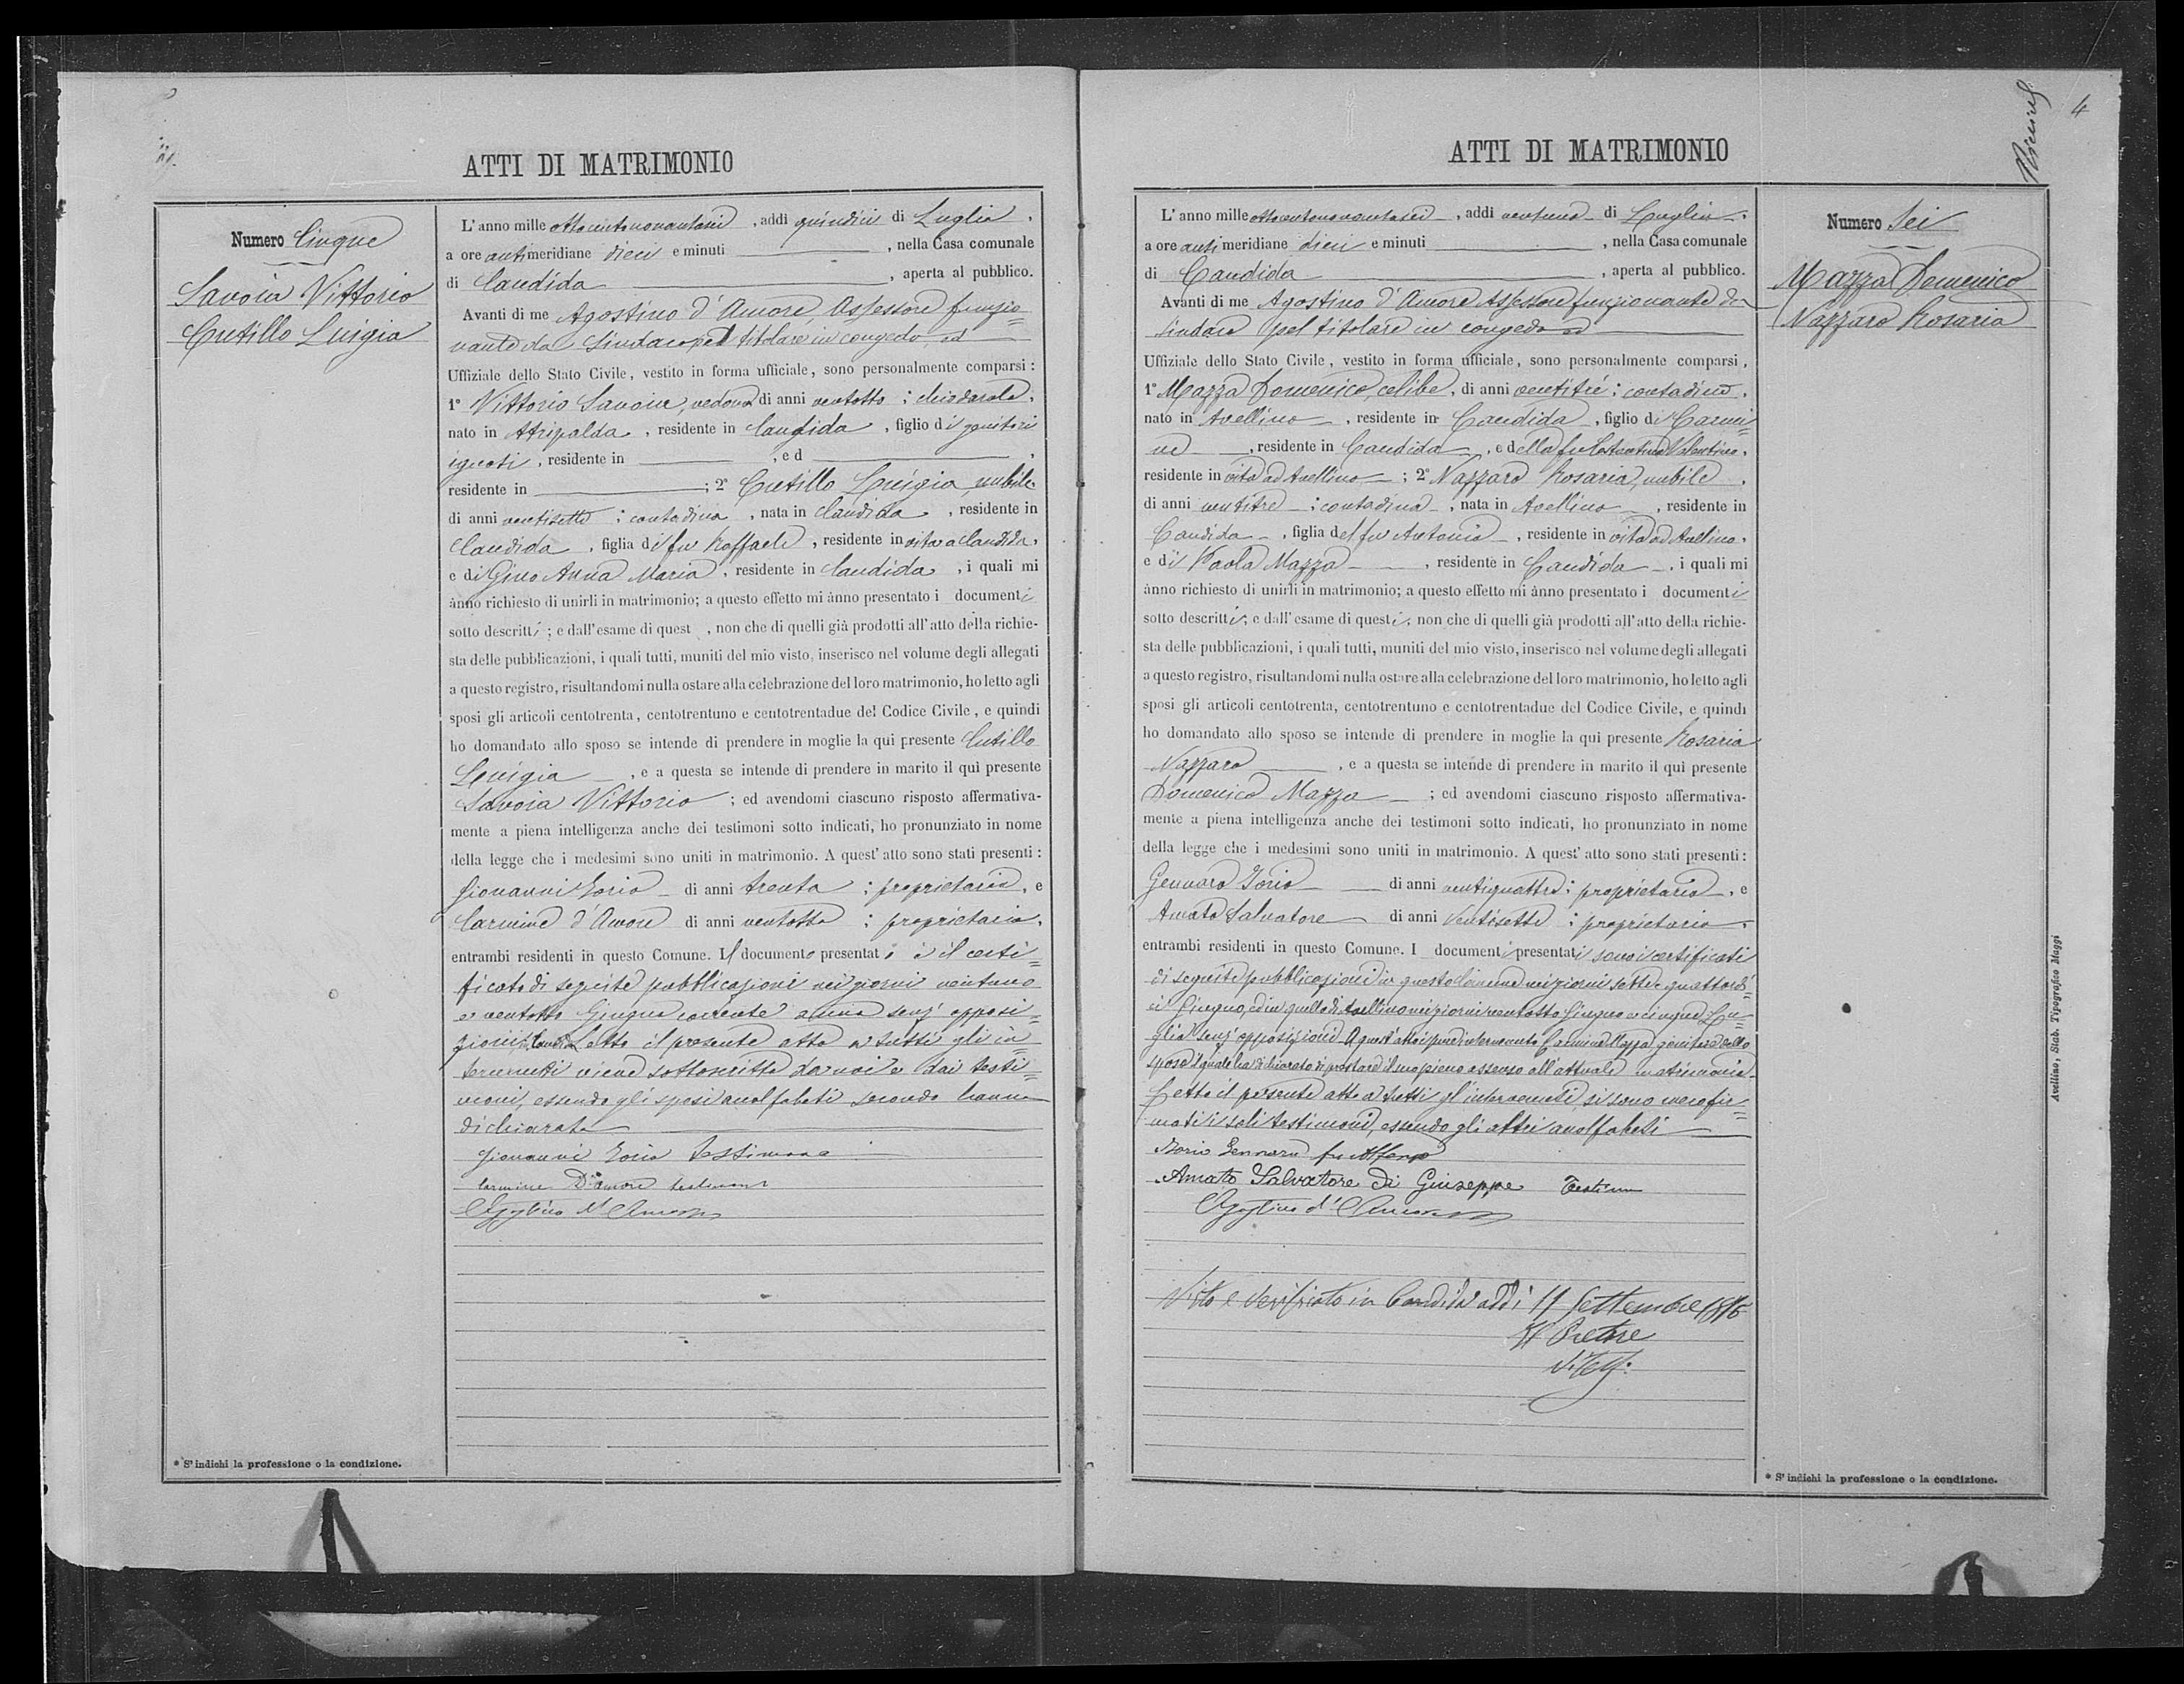 ATTI DI MATRIMONIO
Numero Cinque
Savoia Vittorio
Cutillo Luigia
L'anno mille ottocentonovantasei, addì quindici di Luglio,
a ore antimeridiane dieci e minuti , nella Casa comunale
di Candida , aperta al pubblico.
Avanti di me Agostino d'Amore, Assessore funzio=
nante da Sindaco pel titolare in congedo, ed
Uffiziale dello Stato Civile, vestito in forma ufficiale, sono personalmente comparsi:
1° Vittorio Savoia, vedovo di anni ventotto; chiodarolo,
nato in Atripalda, residente in Candida, figlio di genitori
ignoti, residente in , ed ,
residente in ; 2° Cutillo Luigia, nubile
di anni ventisette; contadina, nata in Candida, residente in
Candida, figlia del fu Raffaele, residente in vita a Candida,
e di Gino Anna Maria, residente in Candida, i quali mi
ànno richiesto di unirli in matrimonio; a questo effetto mi ànno presentato i documenti
sotto descritti; e dall'esame di quest , non che di quelli già prodotti all'atto della richie-
sta delle pubblicazioni, i quali tutti, muniti del mio visto, inserisco nel volume degli allegati
a questo registro, risultandomi nulla ostare alla celebrazione del loro matrimonio, ho letto agli
sposi gli articoli centotrenta, centotrentuno e centotrentadue del Codice Civile, e quindi
ho domandato allo sposo se intende di prendere in moglie la qui presente Cutillo
Luigia, e a questa se intende di prendere in marito il qui presente
Savoia Vittorio; ed avendomi ciascuno risposto affermativa-
mente a piena intelligenza anche dei testimoni sotto indicati, ho pronunziato in nome
della legge che i medesimi sono uniti in matrimonio. A quest'atto sono stati presenti:
Giovanni Iorio di anni trenta; proprietario, e
Carmine d'Amore di anni ventotto; proprietario,
entrambi residenti in questo Comune. Il documento presentato è il certi=
ficato di seguite pubblicazioni nei giorni ventuno
e ventotto Giugno corrente anno senz'opposi=
zioni. Letto il presente atto a tutti gli in=
tervenuti viene sottoscritto da noi e dai testi=
moni, essendo gli sposi analfabeti secondo hanno
dichiarato
Giovanni Iorio testimone
Carmine D'Amore testimone
Agostino d'Amore
* S'indichi la professione o la condizione.
4
ATTI DI MATRIMONIO
Numero Sei
Mazza Domenico
Nazzaro Rosaria
L'anno mille ottocentonovantasei, addì ventuno di Luglio,
a ore antimeridiane dieci e minuti , nella Casa comunale
di Candida , aperta al pubblico.
Avanti di me Agostino d'Amore Assessore funzionante da
Sindaco pel titolare in congedo ed
Uffiziale dello Stato Civile, vestito in forma ufficiale, sono personalmente comparsi,
1° Mazza Domenico, celibe, di anni ventitré; contadino,
nato in Avellino, residente in Candida, figlio di Carmi=
ne, residente in Candida, e della fu Valentino,
residente in vita ad Avellino; 2° Nazzaro Rosaria, nubile,
di anni ventitré; contadina, nata in Avellino, residente in
Candida, figlia del fu Antonio, residente in vita ad Avellino,
e di Paola Mazza, residente in Candida, i quali mi
ànno richiesto di unirli in matrimonio; a questo effetto mi ànno presentato i documenti
sotto descritti; e dall'esame di questi, non che di quelli già prodotti all'atto della richie-
sta delle pubblicazioni, i quali tutti, muniti del mio visto, inserisco nel volume degli allegati
a questo registro, risultandomi nulla ostare alla celebrazione del loro matrimonio, ho letto agli
sposi gli articoli centotrenta, centotrentuno e centotrentadue del Codice Civile, e quindi
ho domandato allo sposo se intende di prendere in moglie la qui presente Rosaria
Nazzaro, e a questa se intende di prendere in marito il qui presente
Domenico Mazza; ed avendomi ciascuno risposto affermativa-
mente a piena intelligenza anche dei testimoni sotto indicati, ho pronunziato in nome
della legge che i medesimi sono uniti in matrimonio. A quest'atto sono stati presenti:
Gennaro Iorio di anni ventiquattro; proprietario, e
Amato Salvatore di anni Ventisette; proprietario,
entrambi residenti in questo Comune. I documenti presentati sono i certificati
di seguite pubblicazioni in questo Comune nei giorni sette e quattordi=
ci Giugno, ed in quello di Avellino nei giorni ventotto Giugno e cinque Lu=
glio senz'opposizioni. A quest'atto è pure intervenuto Carmine Mazza genitore dello
sposo il quale ha dichiarato di prestare il suo pieno assenso all'attuale matrimonio.
Letto il presente atto a tutti gl'intervenuti, si sono meco fir=
mati i soli testimoni, essendo gli altri analfabeti
Iorio Gennaro fu Alfonso
Amato Salvatore di Giuseppe Testimone
Agostino d'Amore
Visto e Verificato in Candida addì 11 Settembre 1896
Il Pretore
* S'indichi la professione o la condizione.
Avellino, Stab. Tipografico Maggi